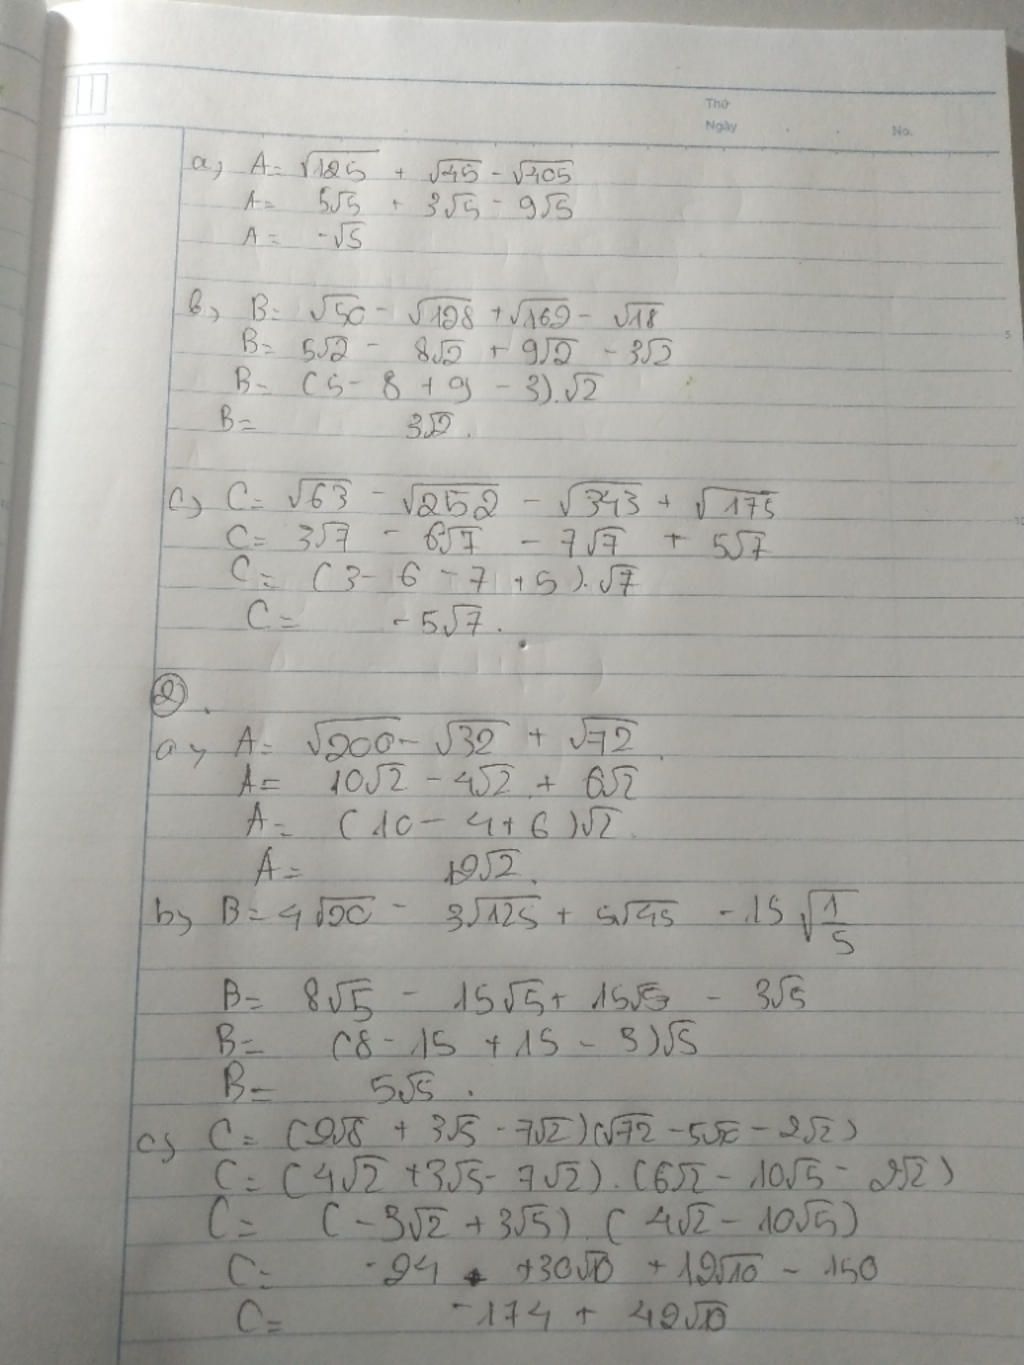 Thứ
Ngày . . No.
a, A = √125 + √45 - √405
A = 5√5 + 3√5 - 9√5
A = -√5
b, B = √50 - √128 + √162 - √18
B = 5√2 - 8√2 + 9√2 - 3√2
B = (5 - 8 + 9 - 3).√2
B = 3√2.
c, C = √63 - √252 - √343 + √175
C = 3√7 - 6√7 - 7√7 + 5√7
C = (3 - 6 - 7 + 5).√7
C = -5√7.
②.
a, A = √200 - √32 + √72
A = 10√2 - 4√2 + 6√2
A = (10 - 4 + 6)√2
A = 12√2.
b, B = 4√20 - 3√125 + 5√45 - 15√(1/5)
B = 8√5 - 15√5 + 15√5 - 3√5
B = (8 - 15 + 15 - 3)√5
B = 5√5.
c, C = (2√8 + 3√5 - 7√2)(√72 - - 2√2)
C = (4√2 + 3√5 - 7√2).(6√2 - 10√5 - 2√2)
C = (-3√2 + 3√5).(4√2 - 10√5)
C = -24 + 30√10 + 12√10 - 150
C = -174 + 42√10